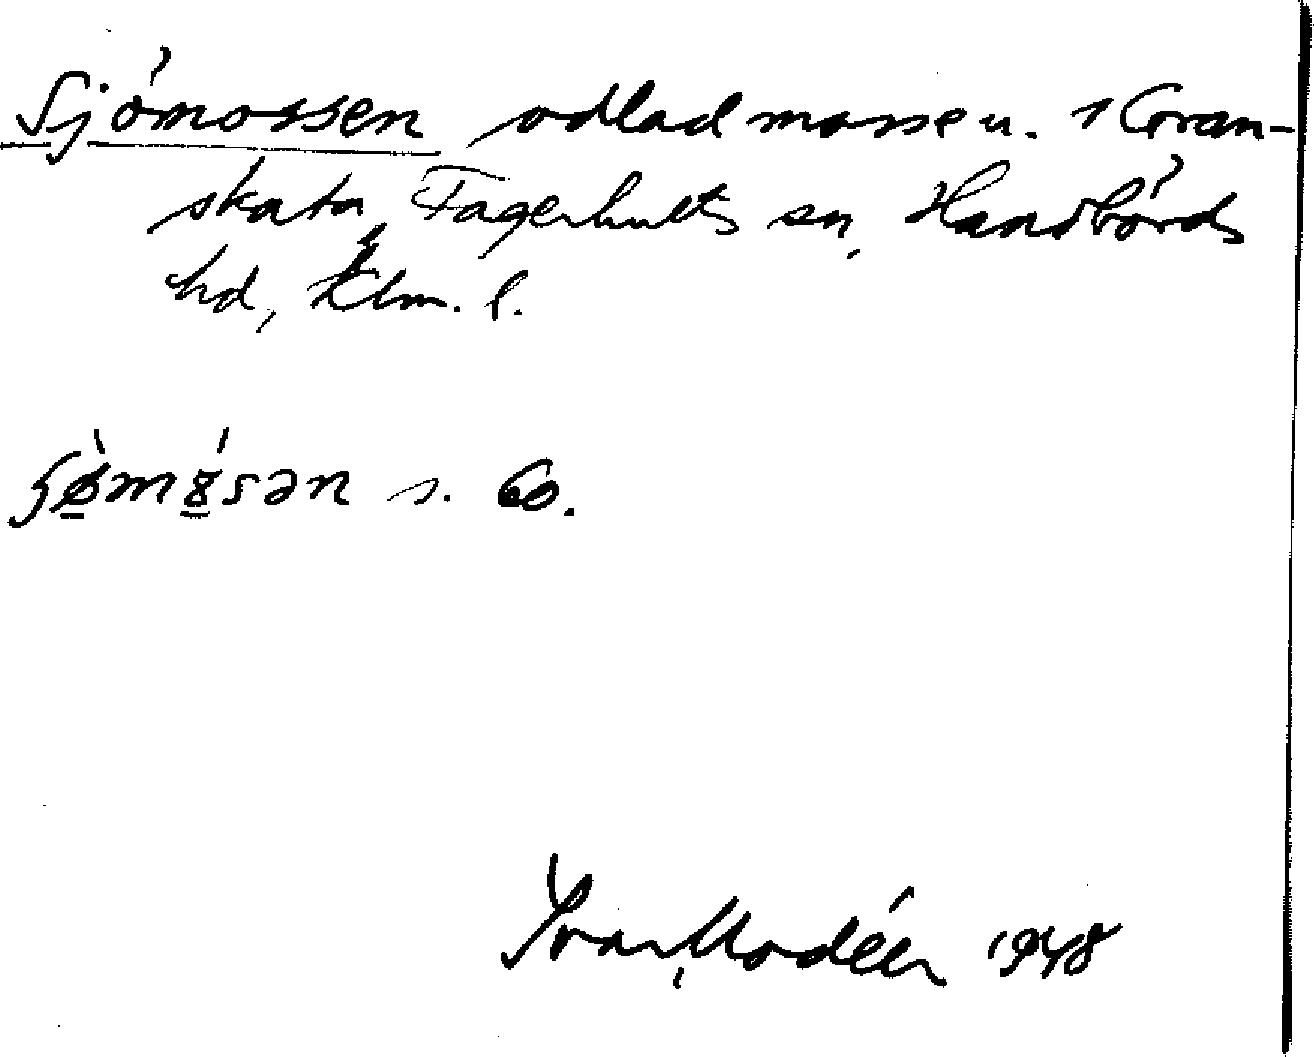 Sjömossen odlad mosse u. 1 Gran-
skata, Fagerhults sn, Handbörds
hd, Klm. l.
s. 60.
Ivar Modéer 1948